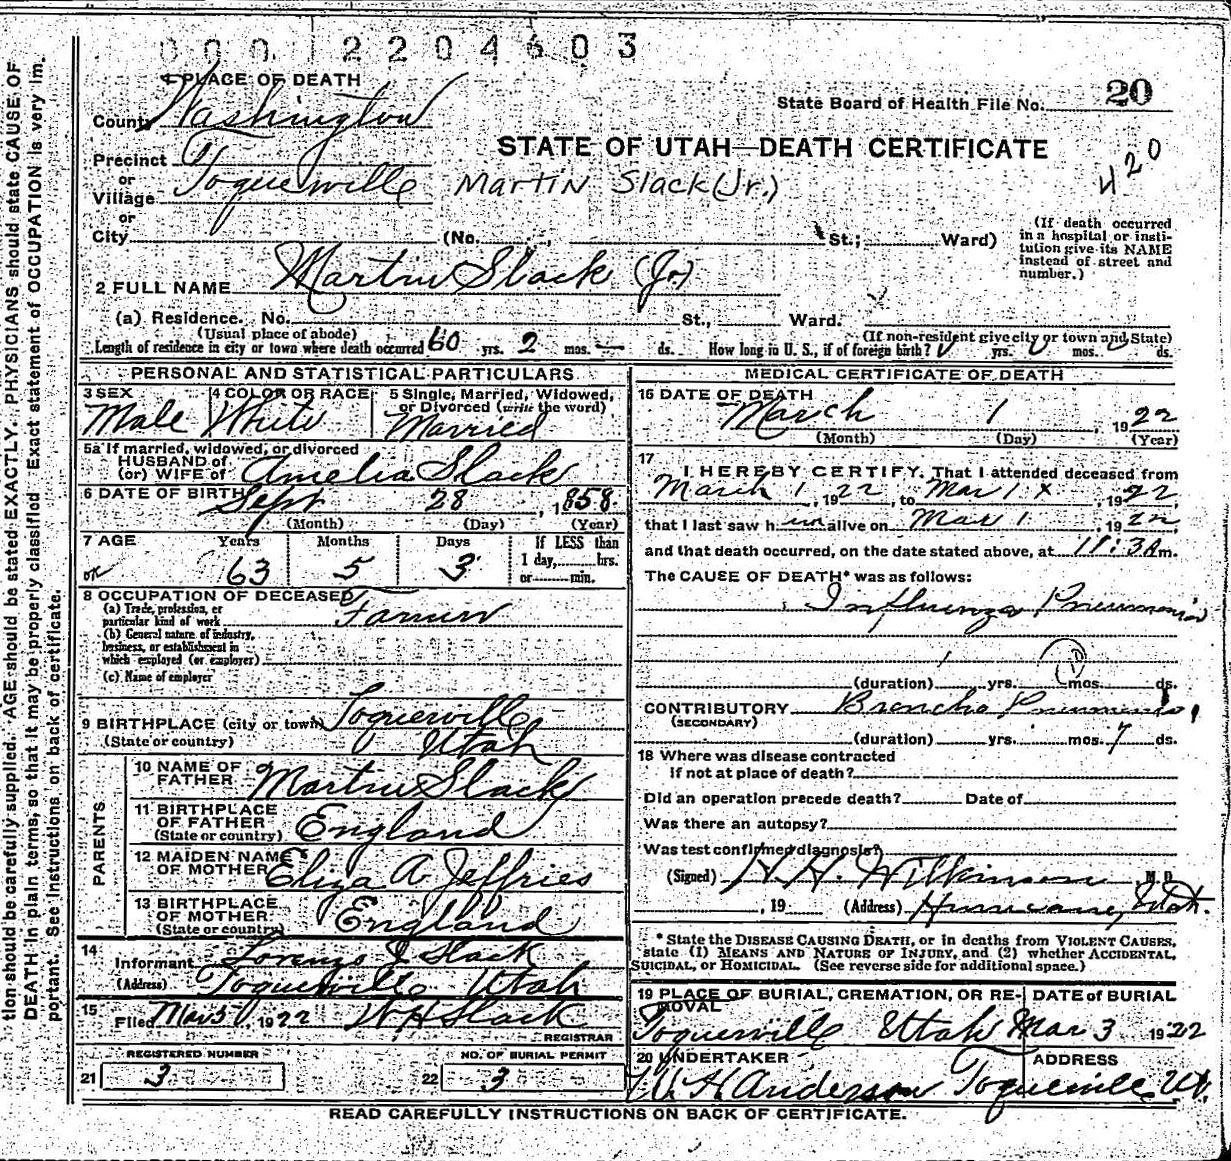 0 0 0 1 2 2 0 4 6 0 3
1 PLACE OF DEATH
County Washington
State Board of Health File No. 20
STATE OF UTAH—DEATH CERTIFICATE
420
Precinct
or
Village Toquerville Martin Slack (Jr.)
or
City (No. , St.; Ward)
(If death occurred
in a hospital or insti-
tution give its NAME
instead of street and
number.)
2 FULL NAME Martin Slack (Jr)
(a) Residence. No. St., Ward.
(Usual place of abode) (If non-resident give city or town and State)
Length of residence in city or town where death occurred 60 yrs. 2 mos. — ds. How long in U. S., if of foreign birth? yrs. mos. ds.
PERSONAL AND STATISTICAL PARTICULARS
3 SEX 4 COLOR OR RACE 5 Single, Married, Widowed,
or Divorced (write the word)
Male White Married
5a If married, widowed, or divorced
HUSBAND of
(or) WIFE of Amelia Slack
6 DATE OF BIRTH Sept 28, 1858
(Month) (Day) (Year)
7 AGE Years Months Days If LESS than
1 day, hrs.
or min.
63 5 3
8 OCCUPATION OF DECEASED
(a) Trade, profession, or
particular kind of work Farmer
(b) General nature of industry,
business, or establishment in
which employed (or employer)
(c) Name of employer
9 BIRTHPLACE (city or town) Toquerville
(State or country) Utah
PARENTS
10 NAME OF
FATHER Martin Slack
11 BIRTHPLACE
OF FATHER
(State or country) England
12 MAIDEN NAME
OF MOTHER Eliza A Jeffries
13 BIRTHPLACE
OF MOTHER
(State or country) England
14
Informant Lorenzo J Slack
(Address) Toquerville Utah
15
Filed Mar 5, 1922 W H Slack
REGISTRAR
REGISTERED NUMBER NO. OF BURIAL PERMIT
21 3 22 3
MEDICAL CERTIFICATE OF DEATH
16 DATE OF DEATH
March 1 1922
(Month) (Day) (Year)
17
I HEREBY CERTIFY, That I attended deceased from
March 1, 1922, to Mar 1 x, 1922
that I last saw h im alive on Mar 1, 1922
and that death occurred, on the date stated above, at 11:30 m.
The CAUSE OF DEATH* was as follows:
Influenza Pneumonia
(duration) yrs. mos. ds.
CONTRIBUTORY Broncho Pneumonia
(SECONDARY)
(duration) yrs. mos. 7 ds.
18 Where was disease contracted
if not at place of death?
Did an operation precede death? Date of
Was there an autopsy?
Was test confirmed diagnosis?
(Signed) H. H. Wilkinson, M. D.
, 19 (Address) Hurricane, Utah.
* State the DISEASE CAUSING DEATH, or in deaths from VIOLENT CAUSES,
state (1) MEANS AND NATURE OF INJURY, and (2) whether ACCIDENTAL,
SUICIDAL, or HOMICIDAL. (See reverse side for additional space.)
19 PLACE OF BURIAL, CREMATION, OR RE-
MOVAL DATE OF BURIAL
Toquerville Utah Mar 3 1922
20 UNDERTAKER ADDRESS
W H Anderson Toquerville Ut.
READ CAREFULLY INSTRUCTIONS ON BACK OF CERTIFICATE.
tion should be carefully supplied. AGE should be stated EXACTLY. PHYSICIANS should state CAUSE OF
DEATH in plain terms, so that it may be properly classified. Exact statement of OCCUPATION is very im-
portant. See instructions on back of certificate.